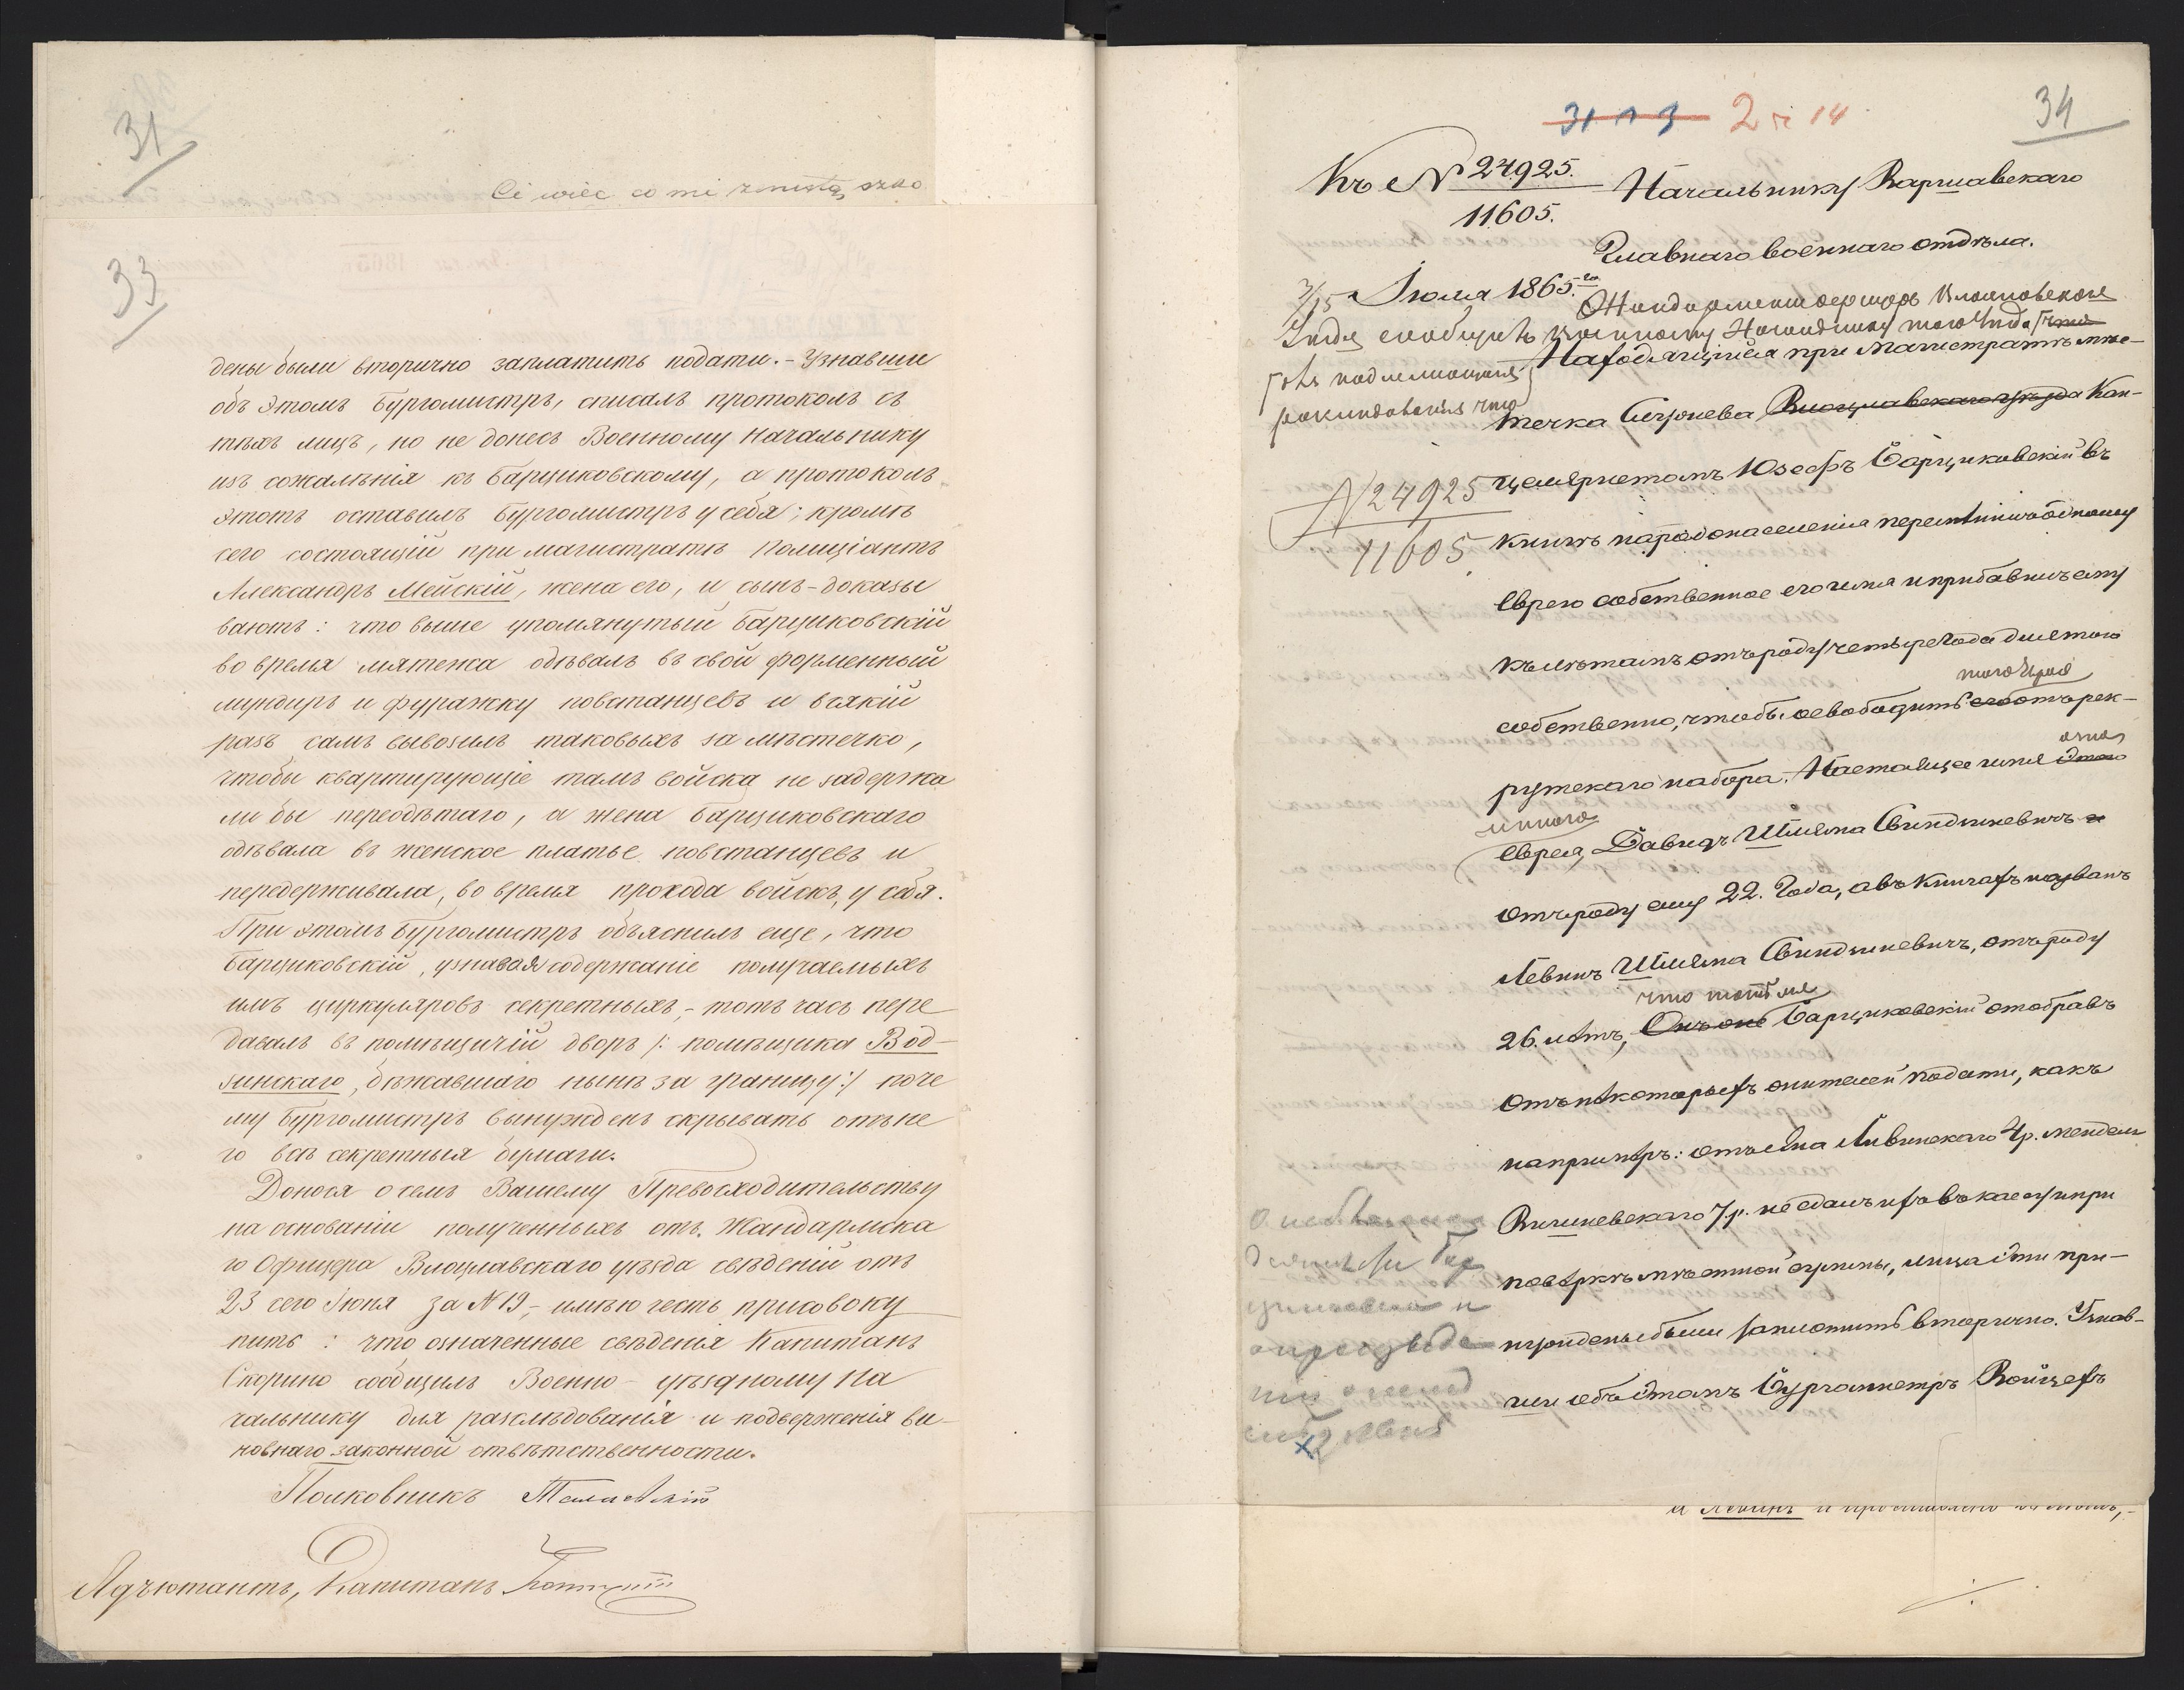 31
33
дены были вторично заплатить подати. - Узнавши
объ этомъ Бургомистръ, списалъ протоколъ съ
тѣхъ лицъ, но не донесъ Военному Начальнику
изъ сожалѣнія къ Барциковскому, а протоколъ
этотъ оставилъ Бургомистръ у себя; кромѣ
сего состоящій при магистратѣ Полиціантъ
Александръ Мейскій, жена его, и сынъ - доказы
ваютъ: что выше упомянутый Барциковскій
во время мятежа одѣвалъ въ свой форменный
мундиръ и фуражку повстанцевъ и всякій
разъ самъ вывозилъ таковыхъ за мѣстечко,
чтобы квартирующіе тамъ войска не задержа
ли бы переодѣтаго, а жена Барциковскаго
одѣвала въ женское платье повстанцевъ и
передерживала, во время прохода войскъ, у себя.
При этомъ Бургомистръ объяснилъ еще, что
Барциковскій, узнавая содержаніе получаемыхъ
имъ циркуляровъ секретныхъ, - тотъ часъ пере
давалъ въ помѣщичій дворъ /: помѣщика Вод-
зинскаго, бѣжавшаго нынѣ за границу :/ поче
му Бургомистръ вынужденъ скрывать отъ не
го всѣ секретныя бумаги.
Донося о семъ Вашему Превосходительству
на основаніи полученныхъ отъ Жандармска
го Офицера Влоцлавскаго уѣзда свѣденій отъ
23 сего Іюня за N 19, - имѣю честь присовоку
пить: что означенные свѣденія Капитанъ
Скорино сообщилъ Военно - уѣздному На
чальнику для разслѣдованія и подверженія ви-
новнаго законной отвѣтственности.
Полковникъ
Адъютантъ, Капитанъ
34
2 14
Къ N 24925.
11605.
Начальнику Варшавскаго
Главнаго военнаго отдѣла.
3/15 Іюля 1865 го
Жандармский офицеръ Влоцлавскаго
Уѣзда сообщилъ военному Начальнику того Уѣзда
Находящійся при Магистратѣ мѣс-
течка Влоцлавскаго уѣзда Кан-
целяристомъ Юзефъ Барциковскій въ
N 24925
11605
книгѣ народонаселенія перемѣнилъ одному
Еврею собственное его имя и прибавилъ ему
къ лѣтамъ отъ роду четыре года для того
собственно, чтобы освободить его отъ рек-
рутскаго набора. Настоящее имя этого
Еврея, Давидъ Шлема Свиндзкевичъ
отъ роду ему 22. года, а въ книгахъ названъ
Левинъ Шлема Свиндзкевичъ, отъ роду
что тотъ же
26. лѣтъ, Барциковскій отобравъ
отъ нѣкоторыхъ жителей подати, какъ
напримѣръ: отъ Ливинскаго 4 р. Менделя
Вишневскаго 7 р. не сдалъ ихъ въ кассу и при
повѣркѣ мѣстной суммы, лица эти при-
нуждены были заплатить вторично. Узнав-
ши объ этомъ Бургомистръ Войцехъ